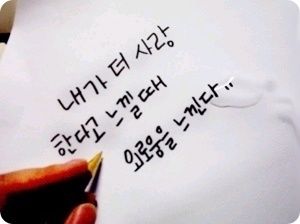 내가 더 사랑
한다고 느낄때
외로움을 느낀다..